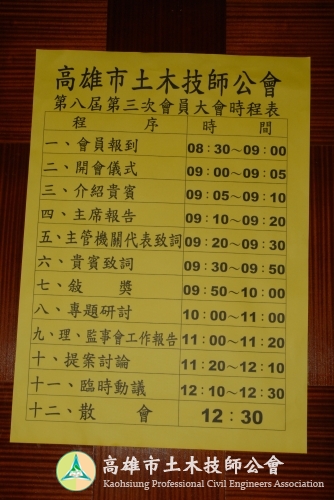 高雄市土木技師公會
第八屆第三次會員大會時程表
程 序 時 間
一、會員報到 08：30～09：00
二、開會儀式 09：00～09：05
三、介紹貴賓 09：05～09：10
四、主席報告 09：10～09：20
五、主管機關代表致詞 09：20～09：30
六、貴賓致詞 09：30～09：50
七、敘 獎 09：50～10：00
八、專題研討 10：00～11：00
九、理、監事會工作報告 11：00～11：20
十、提案討論 11：20～12：10
十一、臨時動議 12：10～12：30
十二、散 會 12：30
高雄市土木技師公會
Kaohsiung Professional Civil Engineers Association